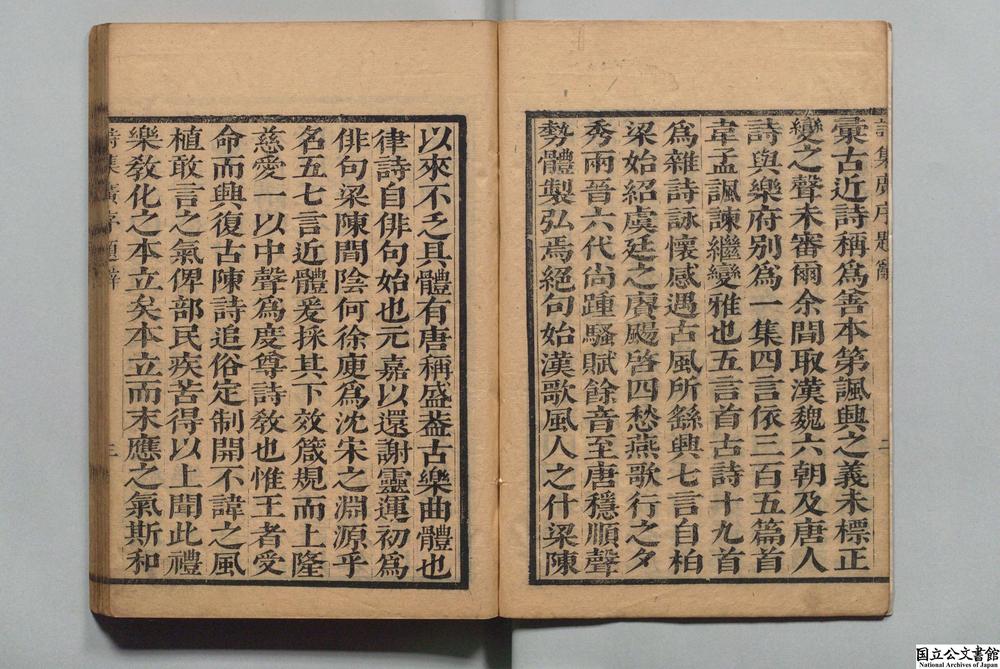 彙古近詩稱爲善本第諷興之義未標正
變之聲未審爾余間取漢魏六朝及唐人
詩與樂府別爲一集四言依三百五篇首
韋孟諷諫繼變雅也五言首古詩十九首
爲雜詩詠懷感遇古風所繇興七言自柏
梁始紹虞廷之賡颺啓四愁燕歌行之夕
秀兩晉六代尚踵騷賦餘音至唐穩順聲
勢體製弘焉絕句始漢歌風人之什梁陳
以來不乏具體有唐稱盛葢古樂曲體也
律詩自俳句始也元嘉以還謝靈運初爲
俳句梁陳間陰何徐庾爲沈宋之淵源乎
名五七言近體爰採其下效箴規而上隆
慈愛一以中聲爲慶尊詩敎也惟王者受
命而興復古陳詩追俗定制開不諱之風
植敢言之氣俾部民疾苦得以上聞此禮
樂敎化之本立矣本立而末應之氣斯和
詩集廣序題辭
三
国立公文書館
National Archives of Japan